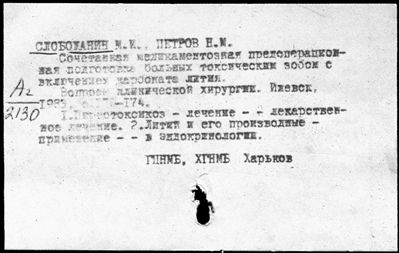 СЛОБОЖАНИН М.И., ПЕТРОВ Н.М.
Сочетанная медикаментозная предоперацион-
ная подготовка больных токсическим зобом с
включением карбоната лития.
Вопросы клинической хирургии. Ижевск,
А2
1983, -174.
2130
I.Тиреотоксикоз - лечение - - лекарствен-
ное лечение. 2.Литий и его производные -
применение - - в эндокринологии.
ГЦНМБ, ХГНМБ Харьков